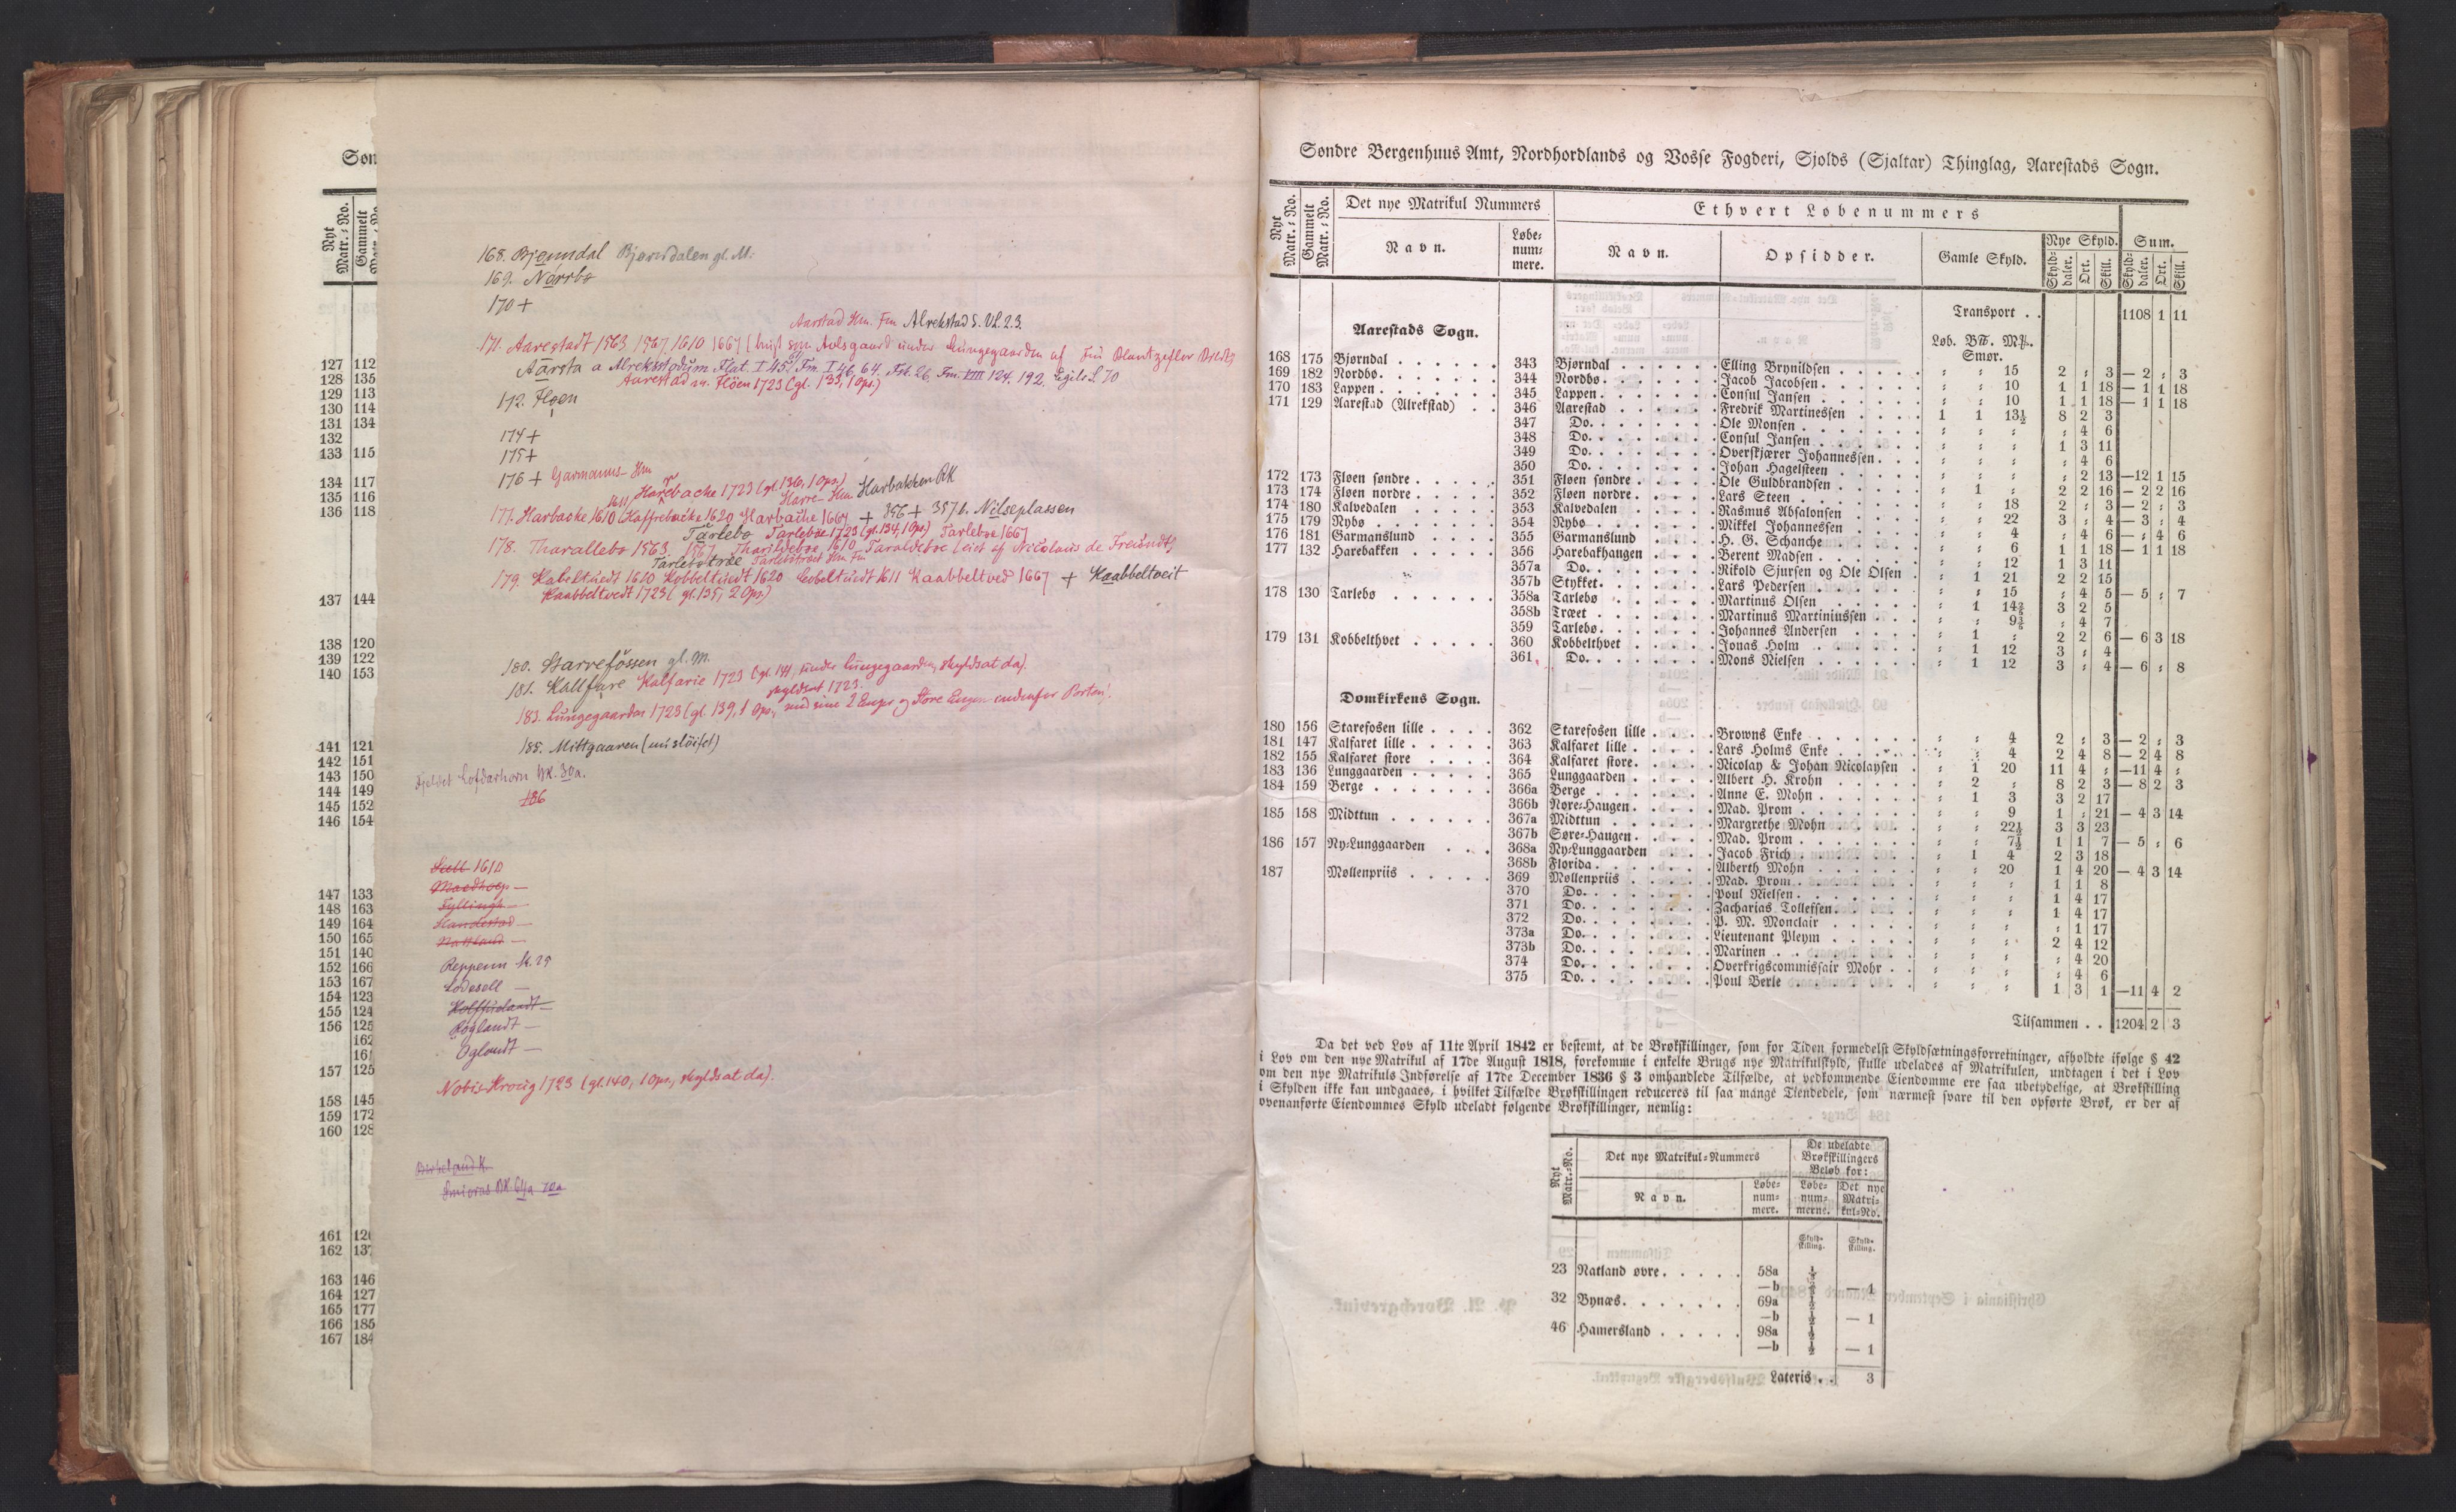 Søn
Nyt Matr.-No.
Gammelt Matr.-No.
127 112
128 135
129 113
130 114
131 134
132
133 115
134 117
135 116
136 118
137 144
138 120
139 122
140 153
141 121
142 151
143 150
144 149
145 152
146 154
147 133
148 163
149 164
150 165
151 140
152 166
153 167
154 123
155 124
156 125
162
157 125
158 145
159 172
160 128
161 12
162 137
163 146
164 127
165 177
166 185
167 184
168. Bjønndal Bjørndalen gl. M:
169. Norrbø
170 +
Aarstad Hm. Fm Alrekstad S. VL. 2 3.
171. Aarestadt 1563 1567. 1610 1667 (brugt som Avlsgaard under Lungegaarden af
Aarsta a Alreksstodum Flat. I 45. Fm. I 46, 64. Fsk. 26. Fm. VIII 124, 192. Egils S. 70
Aarestad m. Fløen 1723 (gl. 133, 1 Ops.)
172. Fløen
174 +
175 +
176 + Garmanns- Hm
Harebache 1723 (gl. 136, 1 Ops.)
177. Harbacke 1610 Kaffrebacke 1620 Harbache 1667 + 356 + 357 b. Nilseplassen
Harre- Hm Harbakken BK
Tarlebø Tarleböe 1723 (gl. 134, 1 Ops.) Tarleböe 1667
178. Tharallebo 1563. 1567 Tharildeboe 1610 Taraldeboe (eiet af Nicolaus de Freundt)
Tarlebøtræe
179. Kabeltuedt 1610 Kobbeltuedt 1620 Cobeltuedt 1611 Kaabbeltved 1667 + Kaabbeltveit
Kaabbeltvedt 1723 (gl. 135, 2 Ops.)
180. Starrefössen gl. M.
181. Kallfare Kalfarie 1723 (gl. 141, under Lungegaarden, skyldsat da).
skyldsat 1723.
183. Lungegaarden 1723 (gl. 139, 1 Ops., med sine 2 Enger og Store Engen indenfor Porten).
185. Mittgaaren (mislöifet)
Fjeldet Lofdarhorn BK. 30a.
186
Sæll 1610
Maedhop —
Fyllingh —
Slandestad —
Nattland —
Reppenn K. 29
Lodesell —
Röglandt —
Oglondt —
Nobis-Kroeig 1723 (gl. 140, 1 Ops., skyldsat da).
Birkeland K.
Smiöraas BK 61a 70a
Søndre Bergenhuus Amt, Nordhordlands og Vosse Fogderi, Sjolds (Sjaltar) Thinglag, Aarestads Sogn.
Nyt Matr.-No. Gammelt Matr.-No. Det nye Matrikul Nummers Ethvert Løbenummers
Navn. Løbenummere. Navn. Opsidder. Gamle Skyld. Nye Skyld. Sum.
Skylddaler. Ort. Skill. Skylddaler. Ort. Skill.
Transport . . 1108 1 11
Aarestads Sogn. Løb. B℔. M℔. Smør.
168 175 Bjørndal . . . 343 Bjørndal . . . Elling Brynildsen . . . " " 15 2 " 3 — 2 " 3
169 182 Nordbø . . . 344 Nordbø . . . Jacob Jacobsen . . . " " 10 1 1 18 — 1 1 18
170 183 Lappen . . . 345 Lappen . . . Consul Jansen . . . " " 10 1 1 18 — 1 1 18
171 129 Aarestad (Alrekstad) . . 346 Aarestad . . . Fredrik Martinessen . . . 1 1 13½ 8 2 3
347 Do. . . . Ole Monsen . . . " " " " 4 6
348 Do. . . . Consul Jansen . . . " " " 1 3 11
349 Do. . . . Overskjærer Johannessen . . . " " " " 4 6
350 Do. . . . Johan Hagelsteen . . . " " " " 2 13 —12 1 15
172 173 Fløen søndre . . . 351 Fløen søndre . . . Ole Guldbrandsen . . . " 1 " 2 2 16 — 2 2 16
173 174 Fløen nordre . . . 352 Fløen nordre . . . Lars Steen . . . " " 18 2 " 3 — 2 " 3
174 180 Kalvedalen . . . 353 Kalvedalen . . . Rasmus Absalonsen . . . " " 22 3 " 4 — 3 " 4
175 179 Nybø . . . 354 Nybø . . . Mikkel Johannessen . . . " " 4 " 4 6 — " 4 6
176 181 Garmanslund . . . 355 Garmanslund . . . H. G. Schanche . . . " " 6 1 1 18 — 1 1 18
177 132 Harebakken . . . 356 Harebakhaugen . . . Berent Madsen . . . " " 12 1 3 11
357a Do. . . . Nikold Sjursen og Ole Olsen . " 1 21 2 2 15
357b Stykket . . . Lars Pedersen . . . " " 15 " 4 5 — 5 " 7
178 130 Tarlebø . . . 358a Tarlebø . . . Martinus Olsen . . . " 1 14⅖ 3 2 5
358b Træet . . . Martinus Martiniussen . . . " " 9⅗ " 4 7
359 Tarlebø . . . Johannes Andersen . . . " 1 " 2 2 6 — 6 3 18
179 131 Kobbelthvet . . . 360 Kobbelthvet . . . Jonas Holm . . . " 1 12 3 " 4
361 Do. . . . Mons Nielsen . . . " 1 12 3 " 4 — 6 " 8
Domkirkens Sogn.
180 156 Starefosen lille . . . 362 Starefosen lille . . . Browns Enke . . . " " 4 2 " 3 — 2 " 3
181 147 Kalfaret lille . . . 363 Kalfaret lille . . . Lars Holms Enke . . . " " 4 2 4 8 — 2 4 8
182 155 Kalfaret store . . . 364 Kalfaret store . . . Nicolay & Johan Nicolaysen . " 1 20 11 4 " —11 4 "
183 136 Lunggaarden . . . 365 Lunggaarden . . . Albert H. Krohn . . . " 2 " 8 2 3 — 8 2 3
184 159 Berge . . . 366a Berge . . . Anne E. Mohn . . . " 1 3 3 2 17
366b Nøre-Haugen . . . Mad. Prom . . . " " 9 1 " 21 — 4 3 14
185 158 Midttun . . . 367a Midttun . . . Margrethe Mohn . . . " " 22½ 3 3 23
367b Søre-Haugen . . . Mad. Prom . . . " " 7½ 1 1 7 — 5 " 6
186 157 Ny-Lunggaarden . . . 368a Ny-Lunggaarden . . . Jacob Frich . . . " 1 4 2 3 18
368b Florida . . . Alberth Mohn . . . " " 20 1 4 20 — 4 3 14
187 Møllenpriis . . . 369 Møllenpriis . . . Mad. Prom . . . " " " 1 1 8
370 Do. . . . Poul Nielsen . . . " " " 1 4 17
371 Do. . . . Zacharias Tollefsen . . . " " " 1 4 17
372 Do. . . . P. M. Monclair . . . " " " " 1 17
373a Do. . . . Lieutenant Pleym . . . " " " 2 4 12
373b Do. . . . Marinen . . . " " " " 4 20
374 Do. . . . Overkrigscommissair Mohr . . " " " " 4 6
375 Do. . . . Poul Berle . . . " " " 1 3 1 —11 4 2
Tilsammen . . 1204 2 3
Da det ved Lov af 11te April 1842 er bestemt, at de Brøkskillinger, som for Tiden formedelst Skyldsætningsforretninger, afholdte ifølge § 42
i Lov om den nye Matrikul af 17de August 1818, forekomme i enkelte Brugs nye Matrikulskyld, skulle udelades af Matrikulen, undtagen i det i Lov
om den nye Matrikuls Indførelse af 17de December 1836 § 3 omhandlede Tilfælde, at vedkommende Eiendomme ere saa ubetydelige, at Brøkskilling
i Skylden ikke kan undgaaes, i hvilket Tilfælde Brøkskillingen reduceres til saa mange Tiendedele, som nærmest svare til den opførte Brøk, er der af
ovenanførte Eiendommes Skyld udeladt følgende Brøkskillinger, nemlig:
Nyt Matr.-No. Det nye Matrikul-Nummers De udeladte Brøkskillingers Beløb for:
Navn. Løbenummere. Løbenummerne. Det nye Matrikul-No.
Skyldskilling. Skyldskilling.
23 Natland øvre . . . 58a ½
—b ½ — 1
32 Bynæs . . . 69a ½
—b ½ — 1
46 Hamersland . . . 98a ½
—b ½ — 1
Lateris . . 3